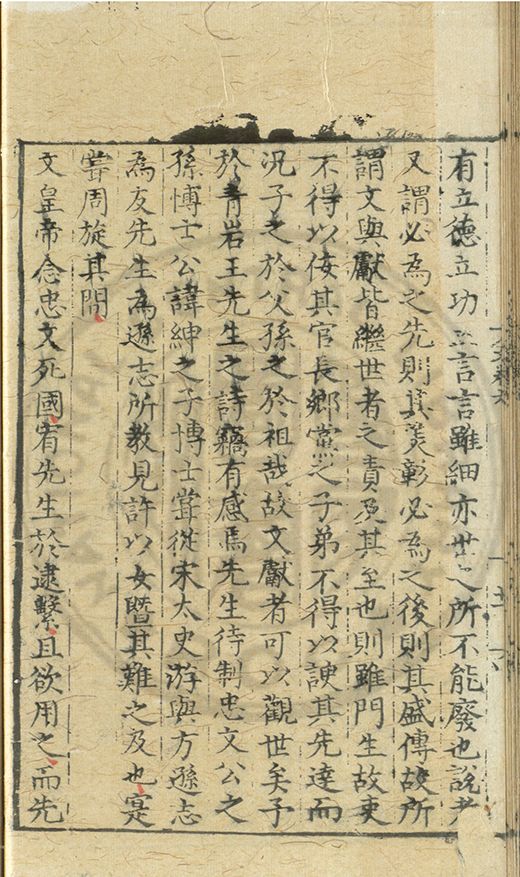 有立德立功立言言雖細亦世之所不能廢也說者
又謂必為之先則其美彰必為之後則其盛傳故所
謂文與獻皆繼世者之責及其至也則雖門生故吏
不得以侫其官長鄉黨之子弟不得以諛其先達而
況子之於父孫之於祖哉故文獻者可以觀世矣予
於青岩王先生之詩竊有感焉先生待制忠文公之
孫博士公諱紳之子博士嘗從宋太史游與方遜志
為友先生為遜志所教見許以女暨其難之及也寔
嘗周旋其間
文皇帝念忠文死國宥先生於逮繫且欲用之而先